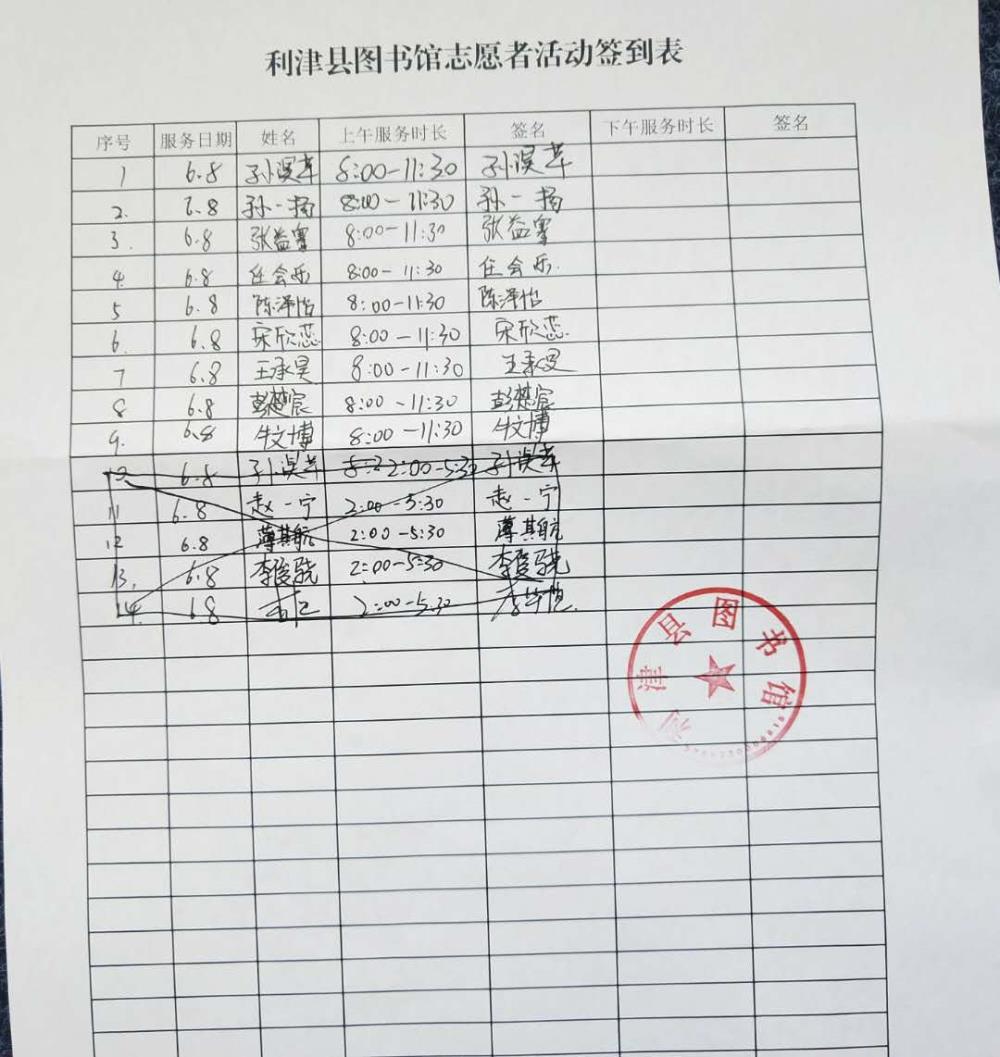 利津县图书馆志愿者活动签到表
序号 服务日期 姓名 上午服务时长 签名 下午服务时长 签名
1 6.8 孙淏苹 8:00-11:30 孙淏苹
2. 6.8 孙一扬 8:00-11:30 孙一扬
3. 6.8 张益 8:00-11:30 张益
4. 6.8 任会乐 8:00-11:30 任会乐.
5 6.8 陈泽怡 8:00-11:30 陈泽怡
6. 6.8 宋欣蕊 8:00-11:30 宋欣蕊.
7 6.8 王承昊 8:00-11:30 王承昊
8 6.8 彭楚宸 8:00-11:30 彭楚宸
9. 6.8 牛文博 8:00-11:30 牛文博
10 6.8 孙淏苹 2:00-5:30 孙淏苹
11 6.8 赵一宁 2:00-5:30 赵一宁
12 6.8 薄其航 2:00-5:30 薄其航
13. 6.8 李俊骁 2:00-5:30 李俊骁
14. 6.8 2:00-5:30
利津县图书馆